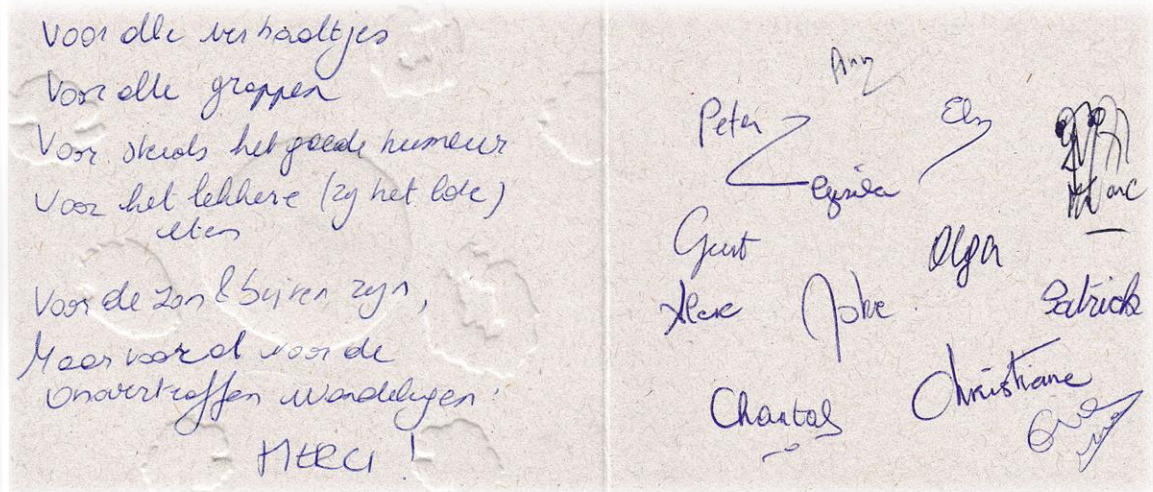 Voor alle verhaaltjes
Voor alle grappen
Voor steeds het goede humeur
Voor het lekkere (zij het late)
eten
Voor de zon & bij ren zijn,
Maar vooral voor de
onovertroffen wandelingen!
MERCI !
Ann
Peter
Els
Marc
Geert
Olga
Joke
Patrick
Chantal
Christiane